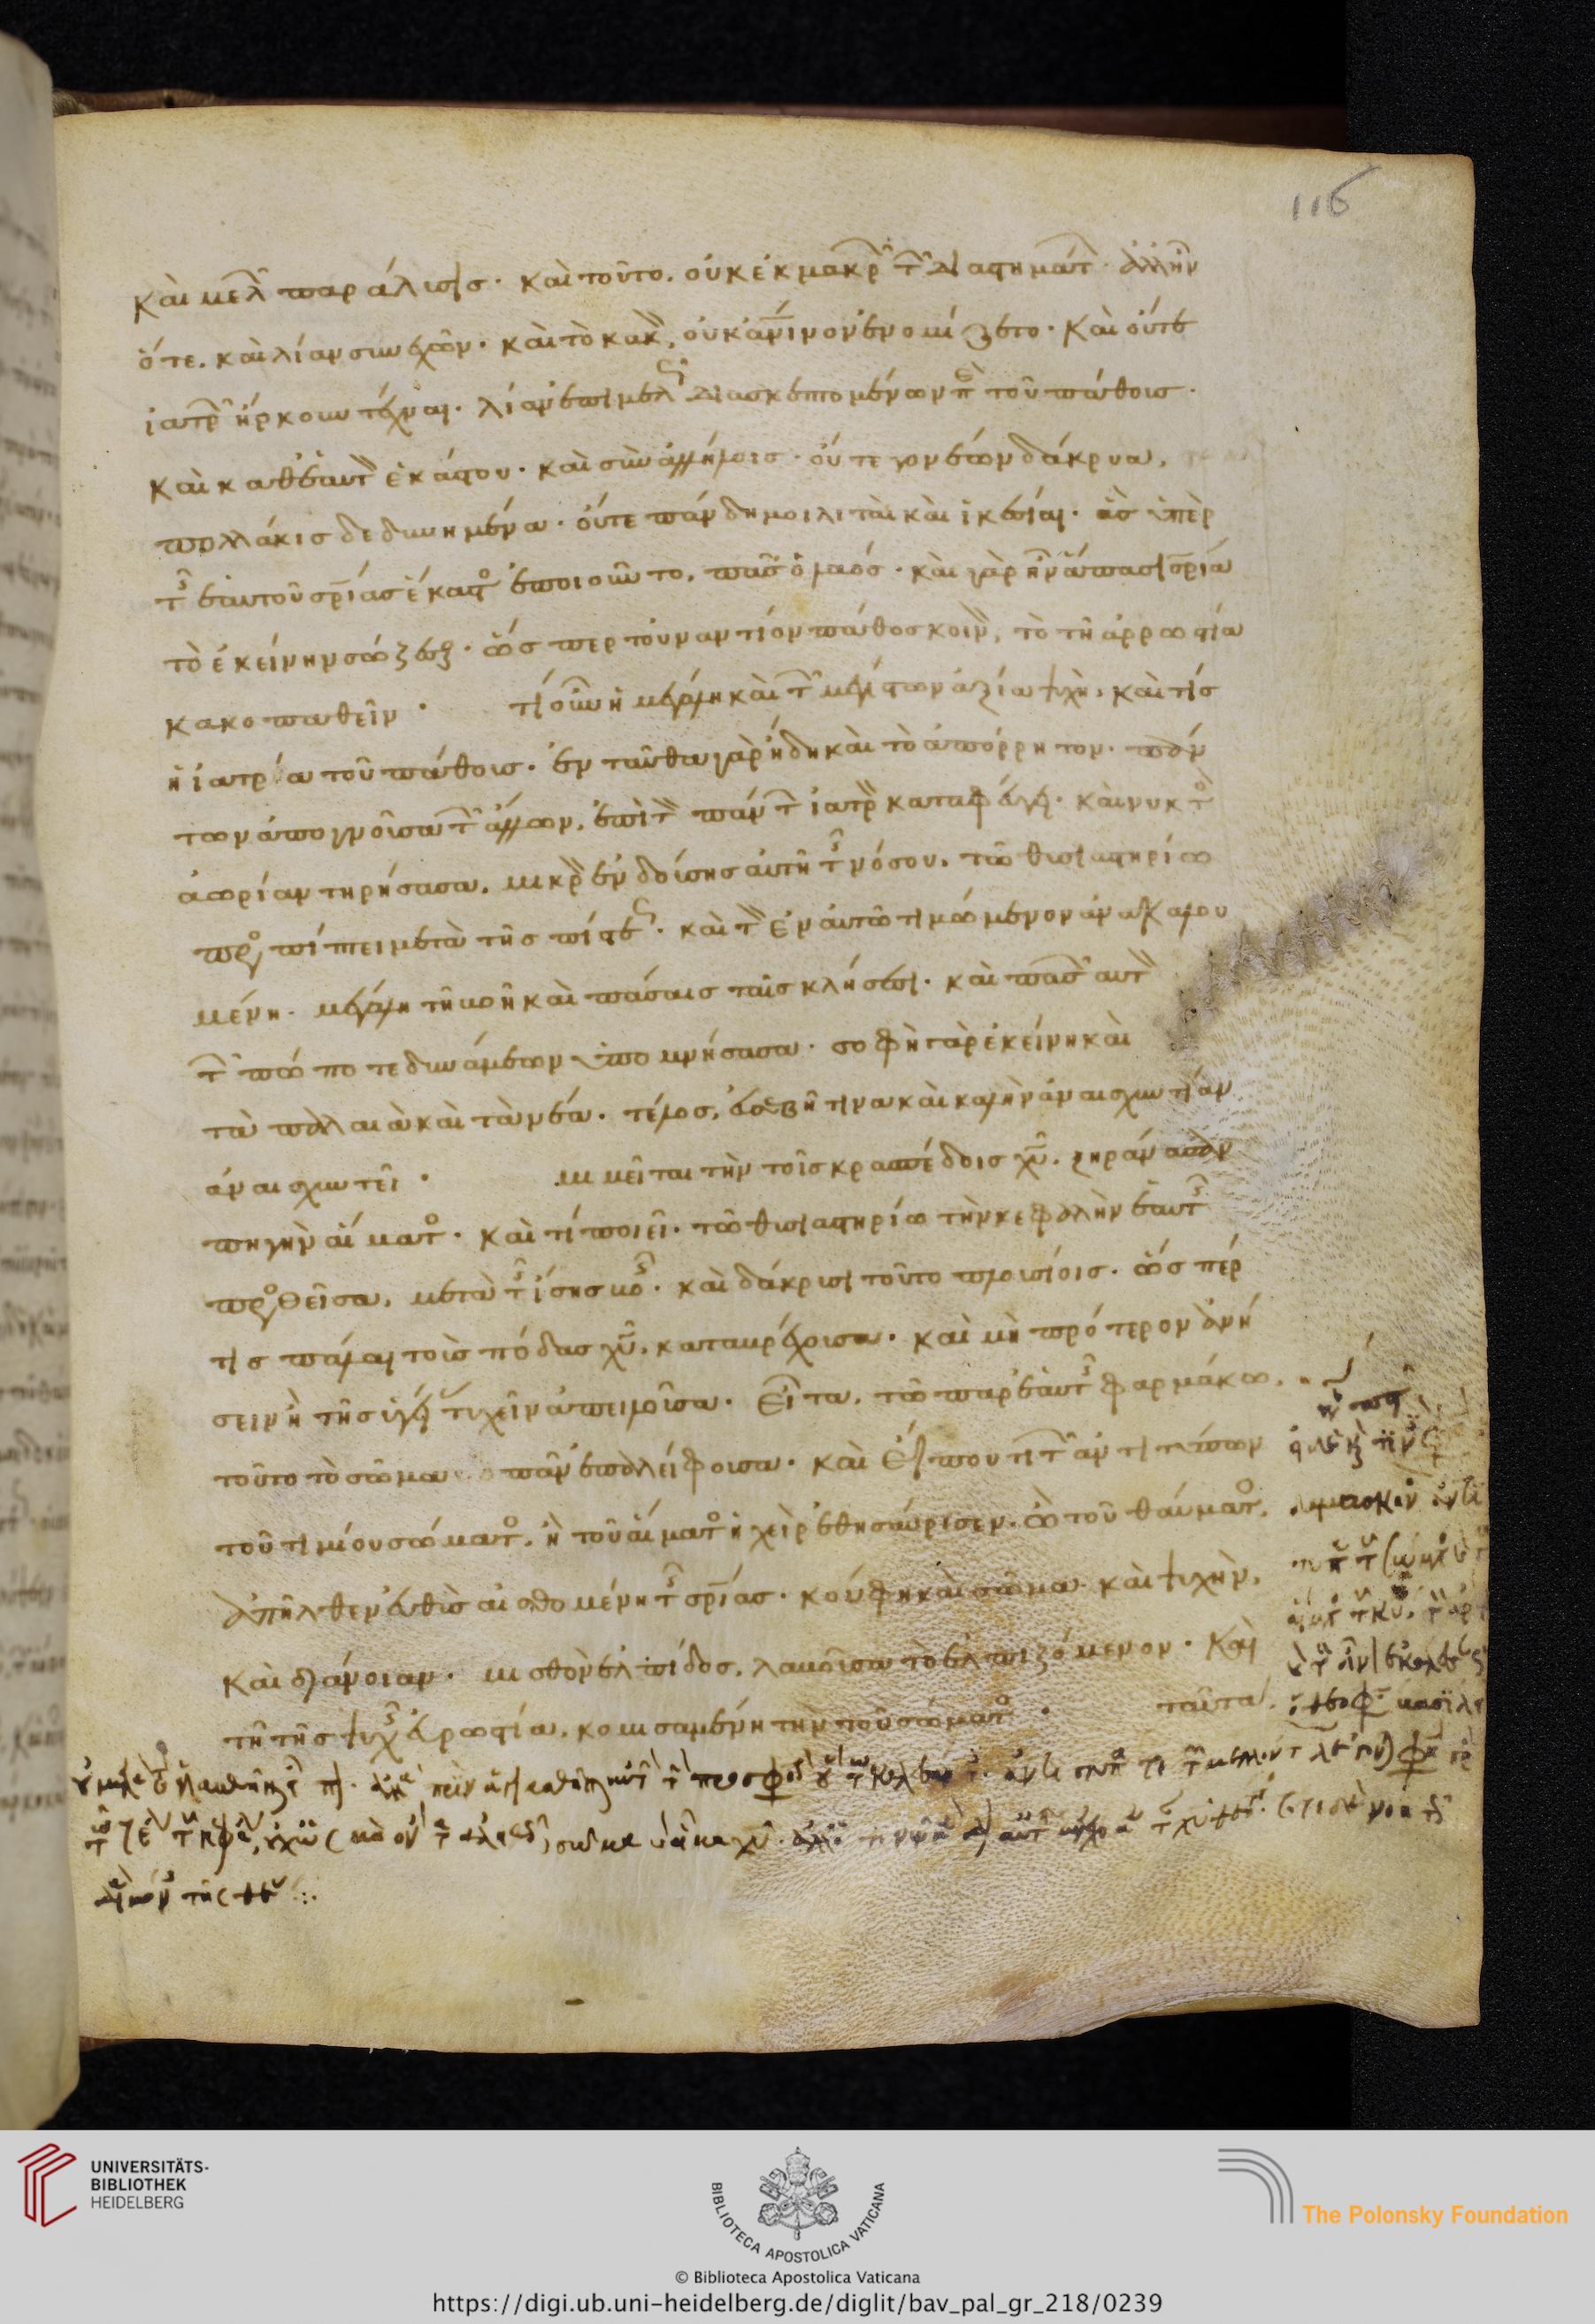 116
καὶ μελῶν παράλυσις· καὶ τοῦτο, οὐκ ἐκ μακρῶν τῶν διαστημάτων· ἀλλ' ἦν
ὅτε, καὶ λίαν συνεχῶν· καὶ τὸ κακὸν, οὐκ ἀνθρώπινον ἐνομίζετο· Καὶ οὔτε
ἰατρῶν ἤρκουν τέχναι· λίαν ἐπιμελῶς διασκεπτομένων περὶ τοῦ πάθους·
καὶ καθ' ἑαυτὸν ἑκάστου· καὶ σὺν ἀλλήλοις· οὔτε γονέων δάκρυα,
πολλάκις δεδυνημένα· οὔτε πάνδημοι λιταὶ καὶ ἱκεσίαι· ἃς ὑπὲρ
τῆς ἑαυτοῦ σωτηρίας ἕκαστος ἐποιοῦντο, πᾶς ὁ λαός· καὶ γὰρ ἦν ἅπασι σωτηρία
τὸ ἐκείνην σώζεσθαι· ὥσπερ τοὐναντίον πάθος κοινὸν, τὸ τῇ ἀρρωστία
κακοπαθεῖν· τί οὖν ἡ μεγάλη καὶ τῶν μεγίστων ἀξία ψυχὴ, καὶ τίς
ἡ ἰατρεία τοῦ πάθους· ἐνταῦθα γὰρ ἤδη καὶ τὸ ἀπόρρητον· πάντων
των ἀπογνοῦσα τῶν ἄλλων, ἐπὶ τὸν πάντων ἰατρὸν καταφεύγει· καὶ νυκτὸς
ἀωρίαν τηρήσασα, μικρὸν ἐνδούσης αὐτῇ τῆς νόσου, τῶ θυσιαστηρίω
προσπίπτει μετὰ τῆς πίστεως· καὶ τὸν ἐν αὐτῶ τιμώμενον ἀνακαλου
μένη· μεγάλη τῆ βοῆ καὶ πάσαις ταῖς κλήσεσι· καὶ πασῶν αὐτὸν
τῶν πώποτε δυνάμεων ὑπομνήσασα· σοφὴ γὰρ ἐκείνη καὶ
τὰ παλαιὰ καὶ τὰ νέα· τέλος, εὐσεβῆ τινα καὶ καλὴν ἀναισχυντίαν
ἀναισχυντεῖ· μιμεῖται τὴν τοῖς κρασπέδοις χυ, ξηράνασαν
πηγὴν αἵματος· καὶ τί ποιεῖ· τῶ θυσιαστηρίω τὴν κεφαλὴν ἑαυτῆς
προσθεῖσα, μετὰ τῆς ἴσης βοῆς· καὶ δάκρυσι τοῦτο πλουσίοις· ὥσπέρ
τις πάλαι τοὺς πόδας χυ, καταβρέχουσα· καὶ μὴ πρότερον ἀνή
σειν ἢ τῆς ὑγείας τυχεῖν ἀπειλοῦσα· Εἶτα, τῶ παρ' ἑαυτῆς φαρμάκω,
τοῦτο τὸ σῶμα πᾶν ἐπαλείφουσα· καὶ εἴ που τι τῶν ἀντιτύπων
τοῦ τιμίου σώματος, ἢ τοῦ αἵματος ἡ χεὶρ ἐθησαύρισεν· ὢ τοῦ θαύματος,
ἀπῆλθεν εὐθὺς αἰσθομένη τῆς σωτηρίας· κούφη καὶ σῶμα καὶ ψυχὴν,
καὶ διάνοιαν· μισθὸν ἐλπίδος, λαβοῦσα τὸ ἐλπιζόμενον· Καὶ
τῆ τῆς ψυχῆς εὐρωστία, κομισαμένη τὴν τοῦ σώματος· ταῦτα
UNIVERSITÄTS-
BIBLIOTHEK
HEIDELBERG
BIBLIOTECA APOSTOLICA VATICANA
The Polonsky Foundation
© Biblioteca Apostolica Vaticana
https://digi.ub.uni-heidelberg.de/diglit/bav_pal_gr_218/0239